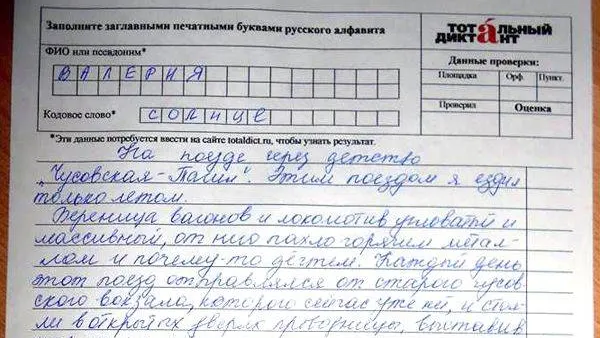 Заполните заглавными печатными буквами русского алфавита
ТОТАЛЬНЫЙ
ДИКТАНТ
ФИО или псевдоним*
ВАЛЕРИЯ
Данные проверки:
Площадка Орф. Пункт.
Проверил Оценка
Кодовое слово* СОЛНЦЕ
*Эти данные потребуется ввести на сайте totaldict.ru, чтобы узнать результат.
На поезде через детство
"Чусовская-Тагил". Этим поездом я ездил
только летом.
Вереница вагонов и локомотив угловатый и
массивный, от него пахло горячим метал-
лом и почему-то дёгтем. Каждый день
этот поезд отправлялся от старого чусов-
ского вокзала, которого сейчас уже нет, и стоя-
ли в открытых дверях проводницы, выставив